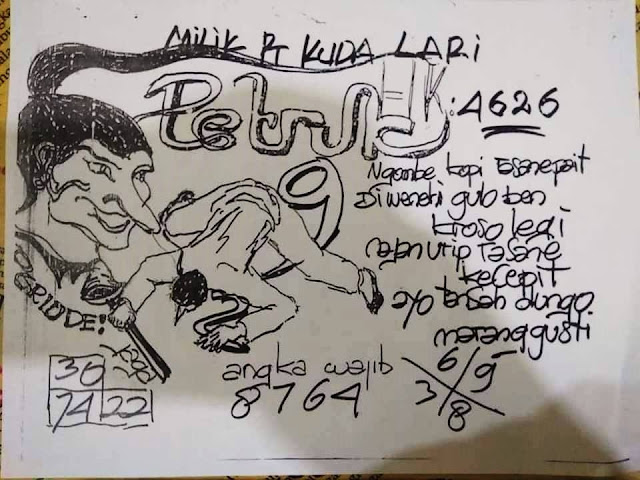 MILIK PT KUDA LARI
Petruk
HK: 4626
Ngombe kopi rasane pait
Diwenehi gulo ben
kroso legi
urip rasane
kecepit
ayo dungo
marang gusti
9
2
GRIDDE!
30
74 22
angka wajib
8764
6/9
3/8